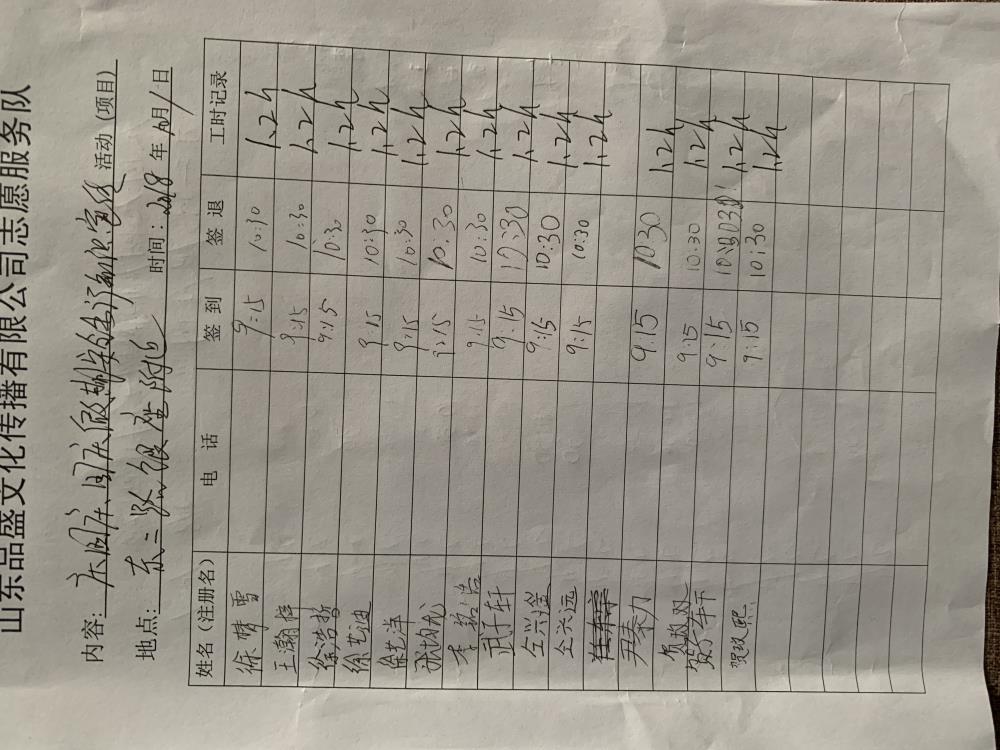 山东品盛文化传播有限公司志愿服务队
内容: 庆国庆、国庆 活动 (项目)
地点: 东二路银座附近 时间: 2018 年 10 月 1 日
姓名 (注册名) 电 话 签 到 签 退 工时记录
徐婧雪 9:15 10:30 1.2h
王瀚梓 9:15 10:30 1.2h
徐浩哲 9:15 10:30 1.2h
徐艺迪 9:15 10:30 1.2h
徐艺洋 9:15 10:30 1.2h
9:15 10:30 1.2h
李哲浩 9:15 10:30 1.2h
武子轩 9:15 10:30 1.2h
仝兴鉴 9:15 10:30 1.2h
仝兴远 9:15 10:30 1.2h
尹泰力 9:15 10:30 1.2h
贺双双 9:15 10:30 1.2h
9:15 1.2h
贺玟熙 9:15 10:30 1.2h